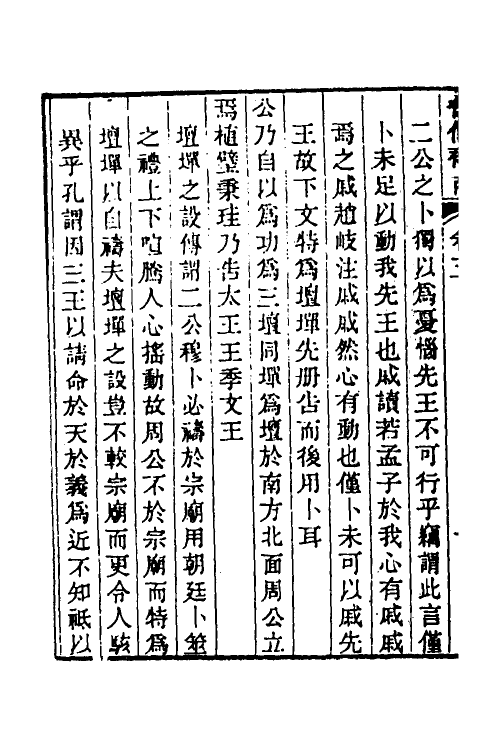 二公之卜獨以為憂惱先王不可行乎竊謂此言僅
卜未足以動我先王也戚讀若孟子於我心有戚戚
焉之戚趙岐注戚戚然心有動也僅卜未可以戚先
王故下文特為壇墠先册告而後用卜耳
公乃自以為功為三壇同墠為壇於南方北面周公立
焉植璧秉珪乃告太王王季文王
壇墠之設傳謂二公穆卜必禱於宗廟用朝廷卜筮
之禮上下喧騰人心搖動故周公不於宗廟而特為
壇墠以自禱夫壇墠之設豈不較宗廟而更令人駭
異乎孔謂因三王以請命於天於義為近不知祗以